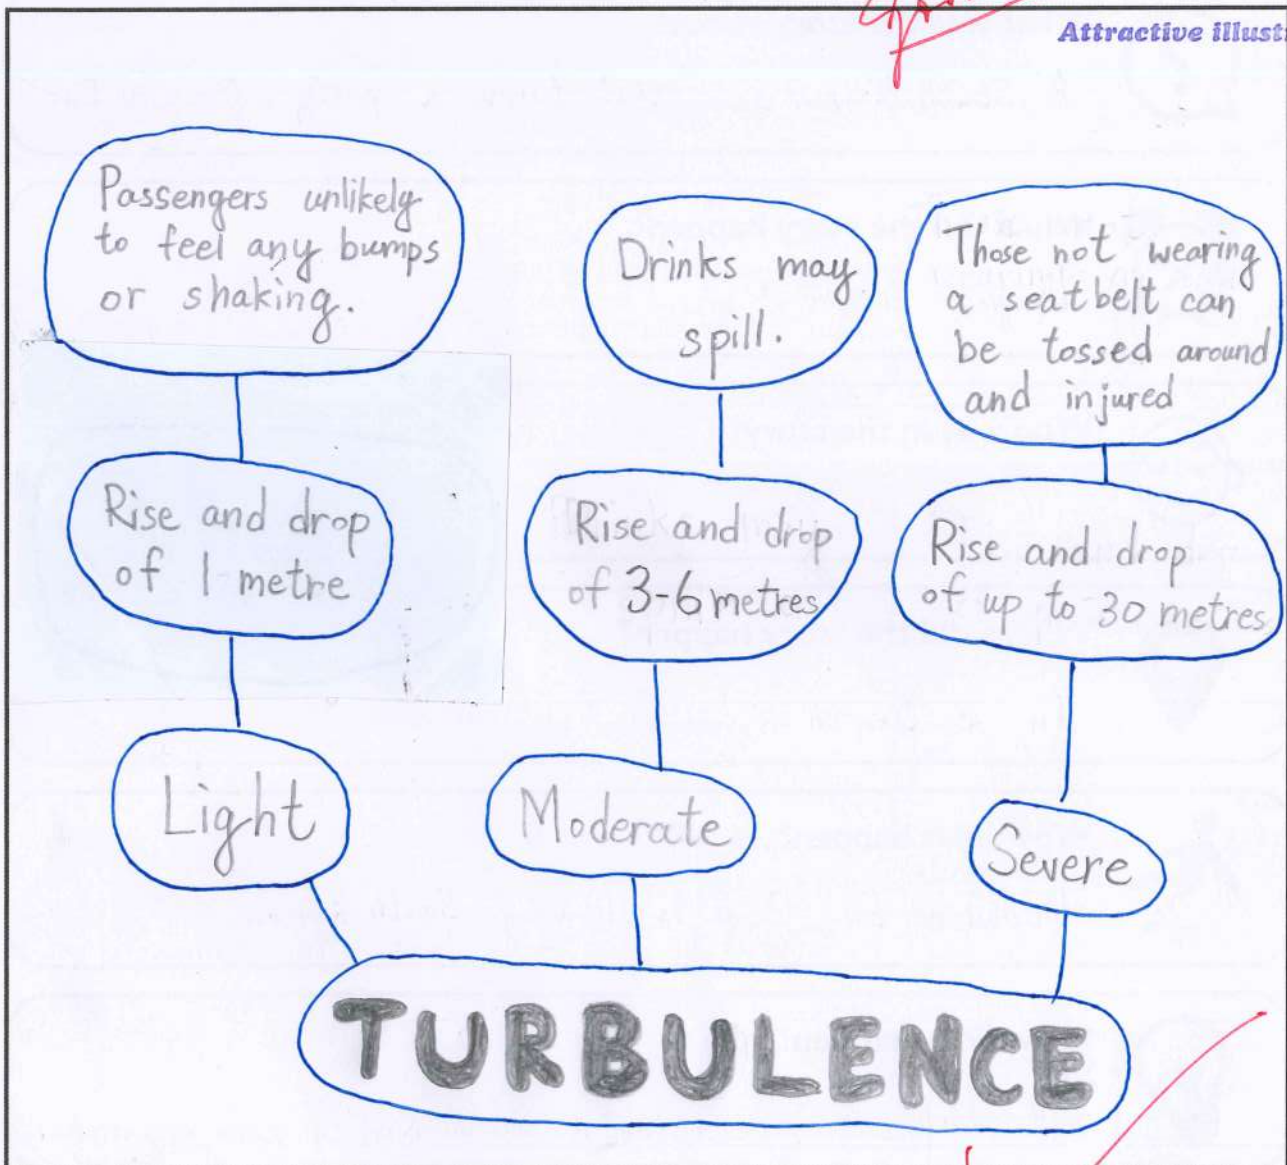 Attractive illust
Passengers unlikely
to feel any bumps
or shaking.
Drinks may
spill.
Those not wearing
a seatbelt can
be tossed around
and injured
Rise and drop
of 1 metre
Rise and drop
of 3-6 metres
Rise and drop
of up to 30 metres
Light
Moderate
Severe
TURBULENCE